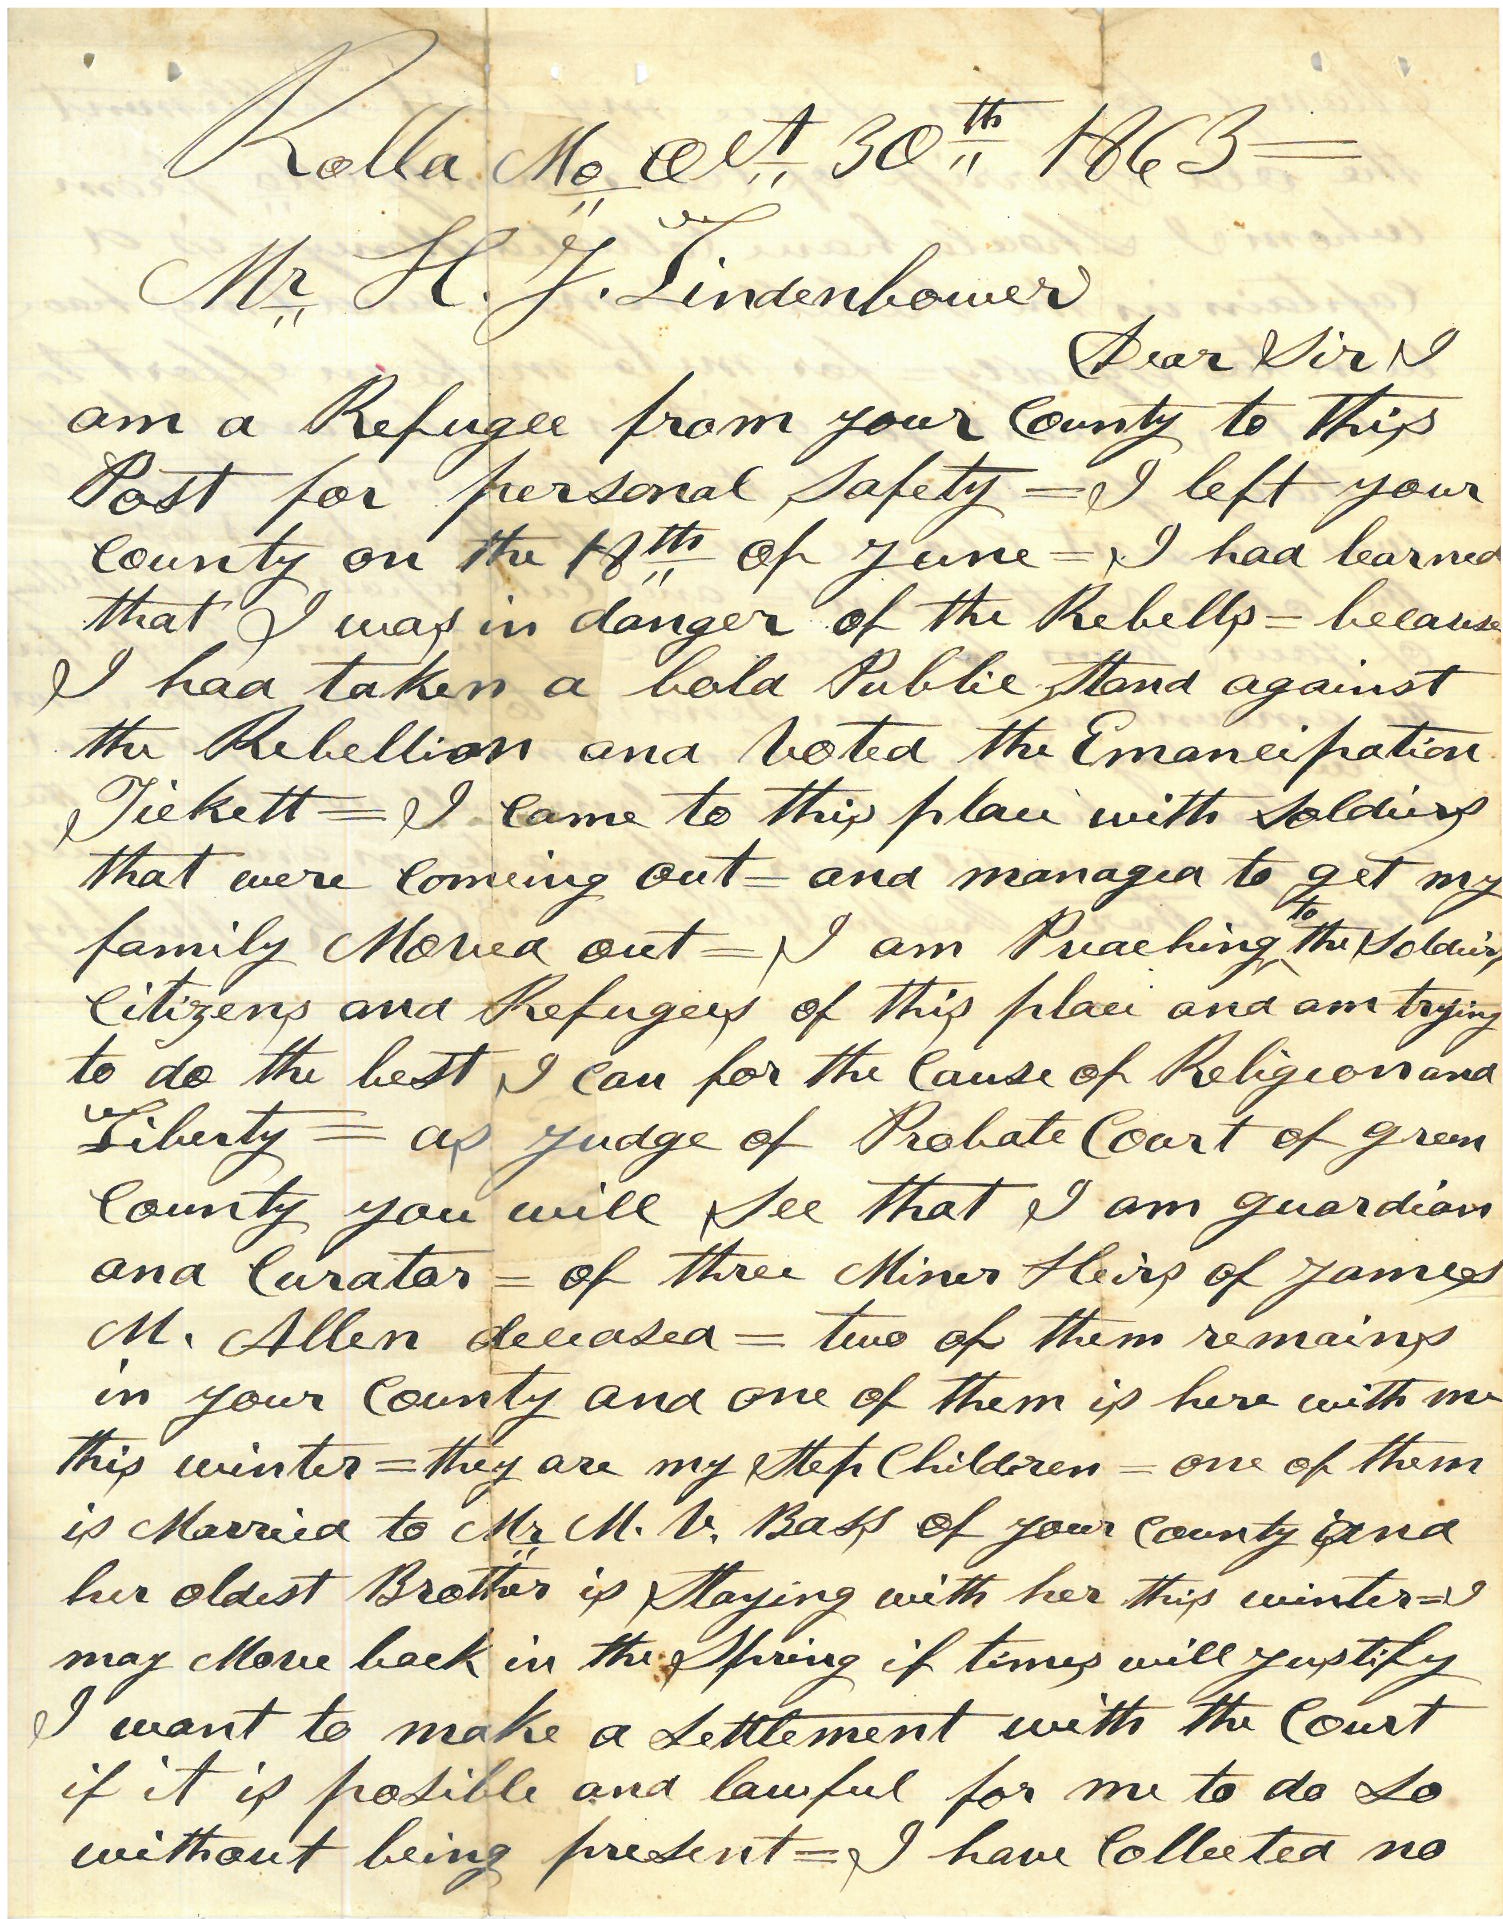 Rolla Mo Oct 30th 1863=
Mr H. J. Lindenbower
Dear Sir I
am a Refugee from your County to this
Post for personal Safety = I left your
County on the 18th of June = I had learned
that I was in danger of the Rebells = because
I had taken a bold Public Stand against
the Rebellion and Voted the Emancipation
Tickett = I came to this place with Soldiers
that were comeing out = and managed to get my
family Moved out = I am Preaching to the Soldiers
Citizens and Refugees of this place and am trying
to do the best I can for the Cause of Religion and
Liberty = as Judge of Probate Court of Green
County you will See that I am guardian
and Curator = of three Miner Heirs of James
M. Allen deceased = two of them remains
in your County and one of them is here with me
this winter = they are my Step Children = one of them
is Married to Mr M. V. Bass of your County and
her oldest Brother is Staying with her this winter = I
may Move back in the Spring if times will justify
I want to make a Settlement with the Court
if it is posible and lawful for me to do so
without being present = I have Collected no